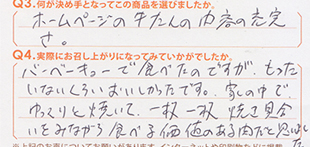 Q3.何が決め手となってこの商品を選びましたか。
ホームページの牛たんの内容の充実
さ。
Q4.実際にお召し上がりになってみていかがでしたか。
バーベキューで食べたのですが、もったい
いないくらいおいしかったです。家の中で、
ゆっくりと焼いて、一枚一枚焼き具合
いをみながら食べる価値のある肉だと思いました